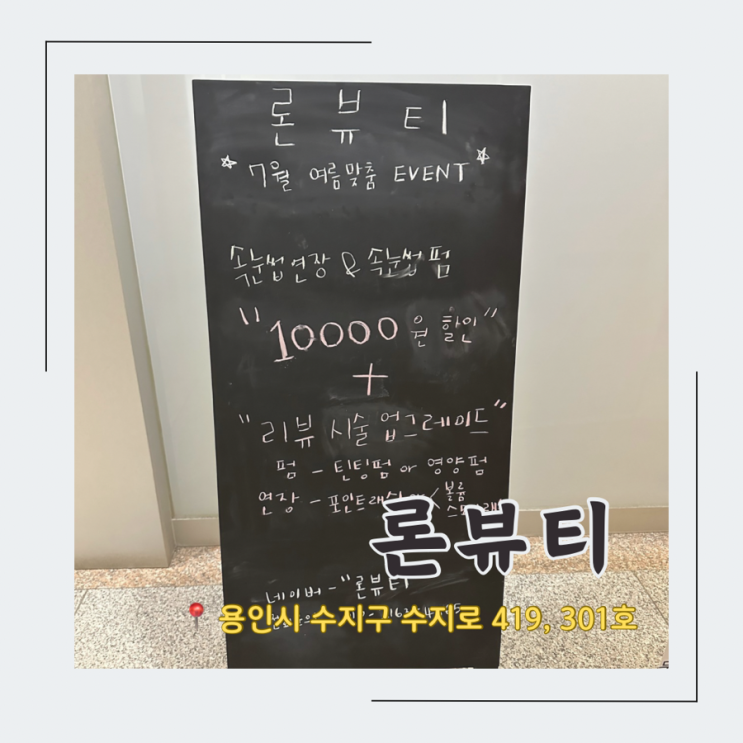 론뷰티
7월 여름맞춤 EVENT
속눈썹연장 & 속눈썹펌
"10000원 할인"
+
"리뷰 시술 업그레이드"
펌 - 틴팅펌 or 영양펌
연장 - 포인트래쉬
볼륨
론뷰티
네이버 - "론뷰티
용인시 수지구 수지로 419, 301호